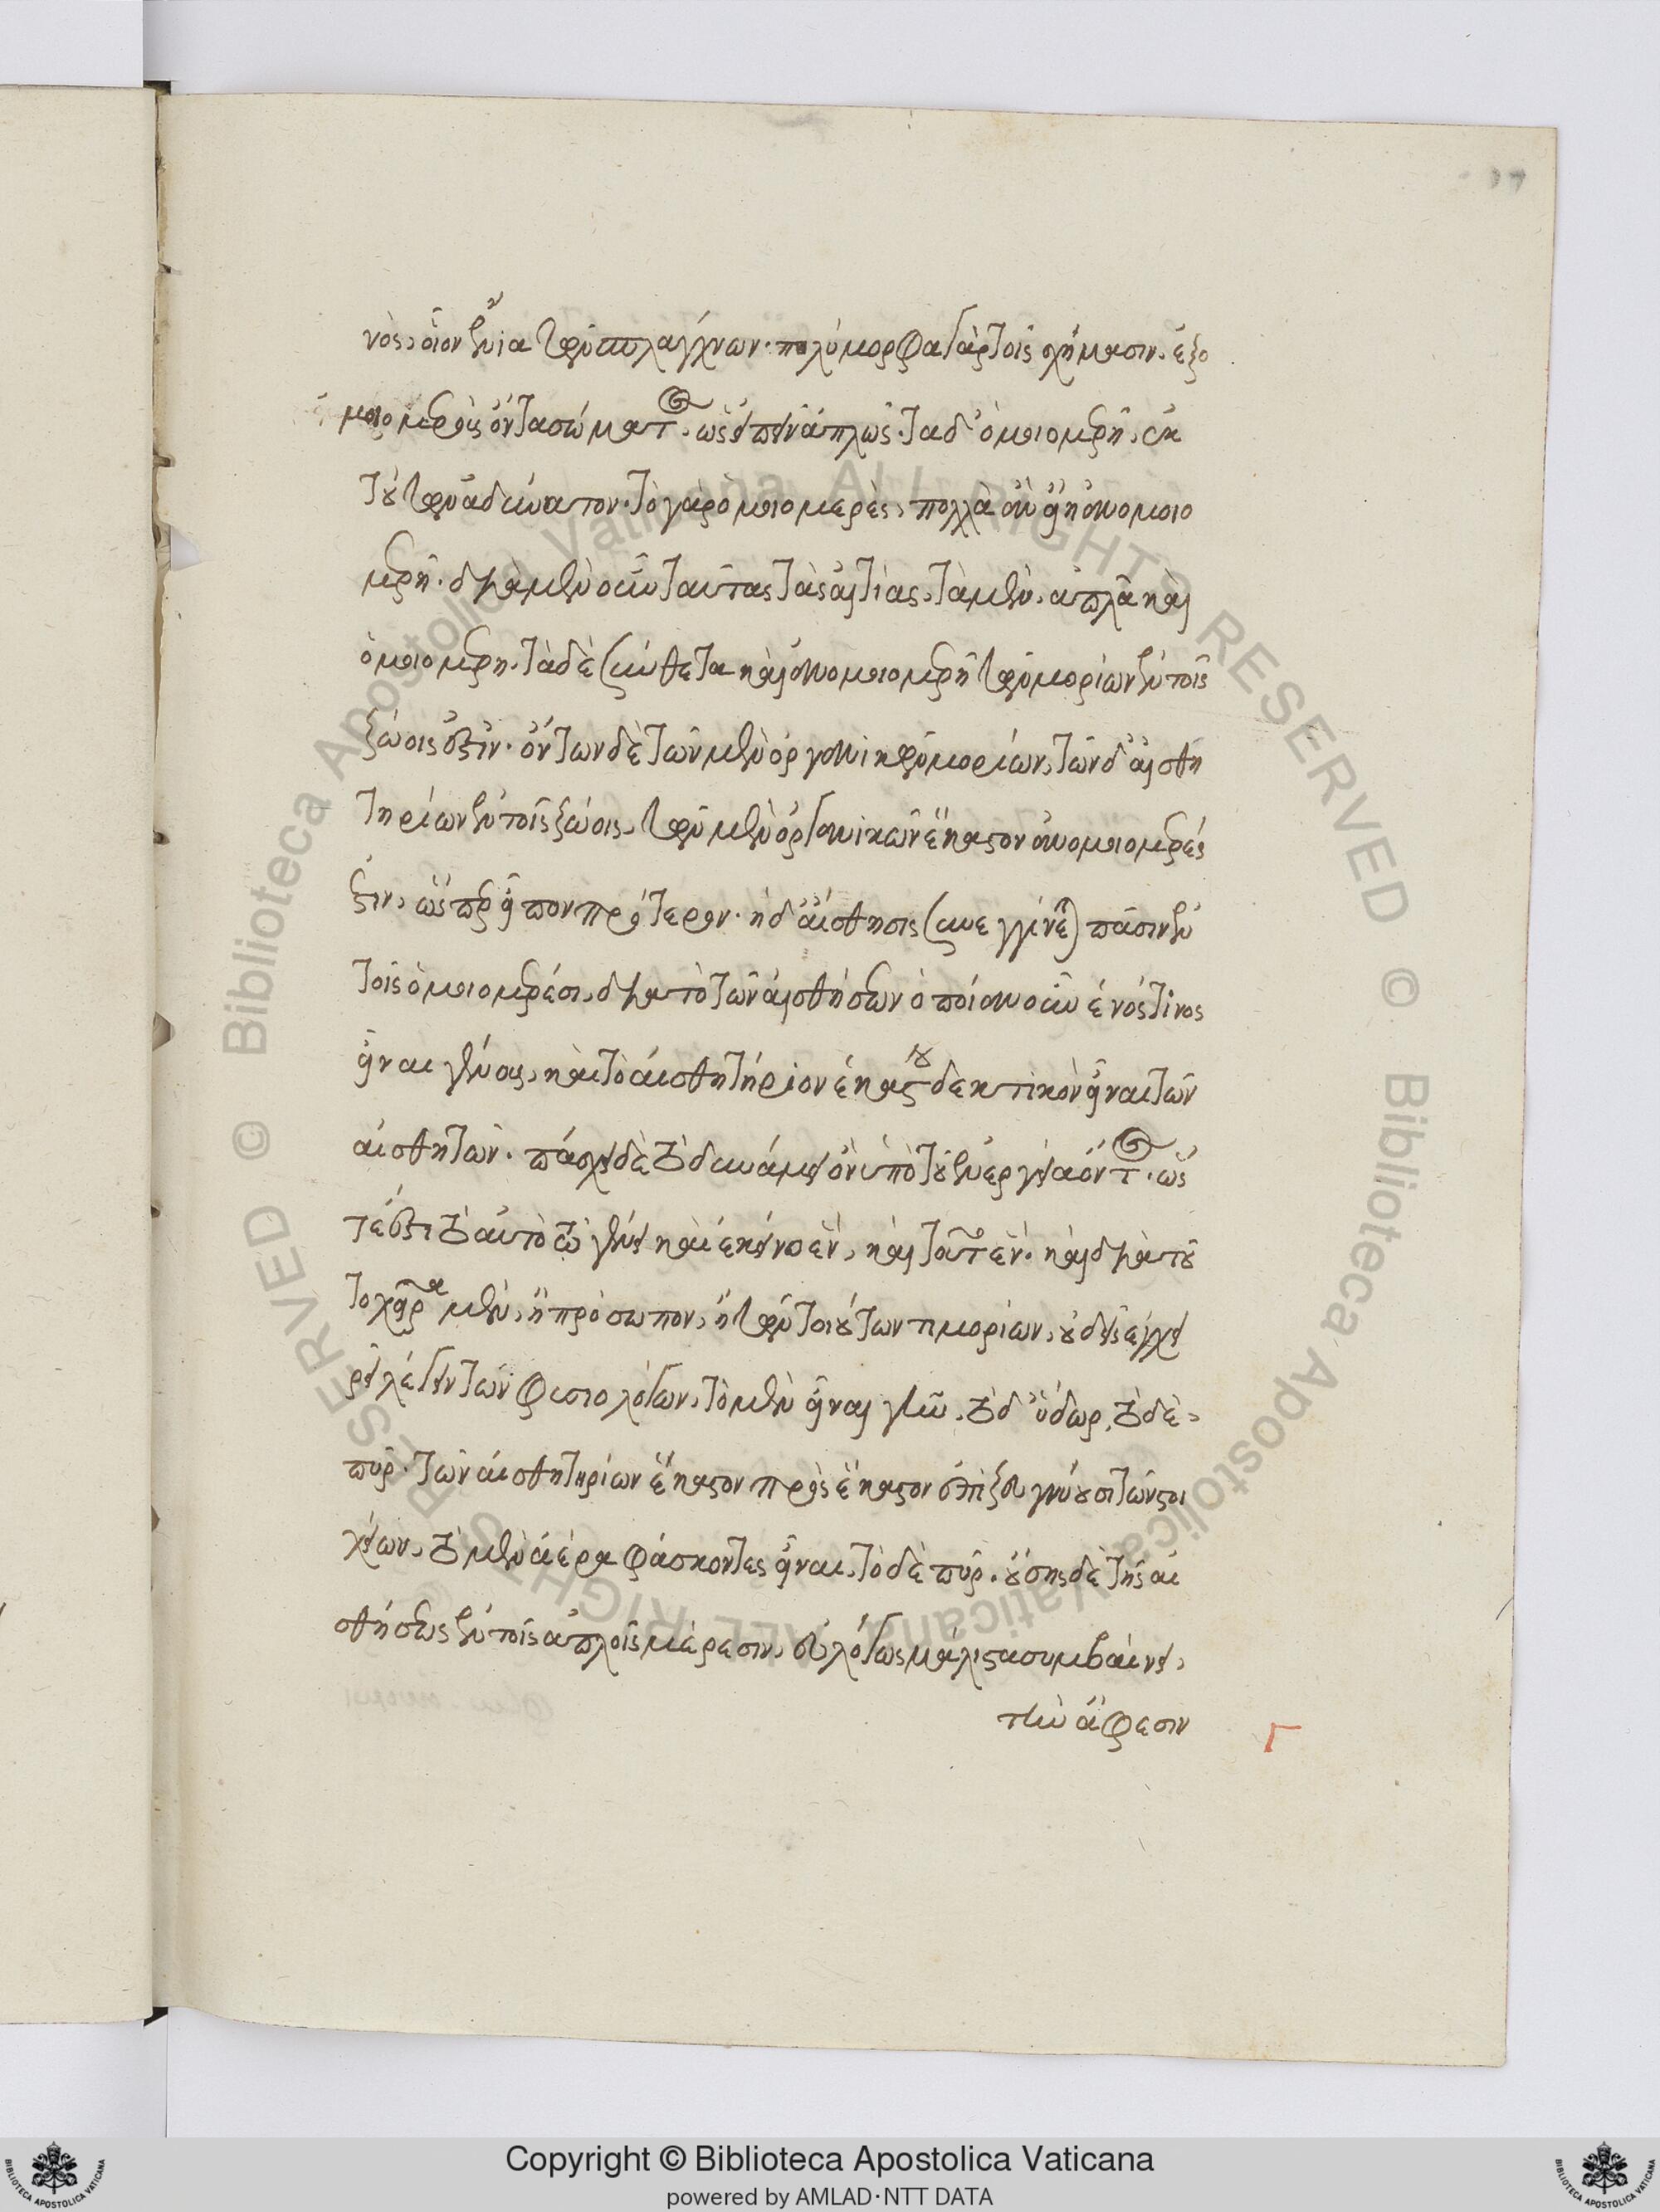 νὸς, οἷον ἔνια τῶν σπλάγχνων. πολύμορφα γὰρ τοῖς σχήμασιν. ἐξ ὁ
μοιομεροῦς ὄντα σώματος. ὡς εἰπεῖν ἁπλῶς. τὰ δ' ὁμοιομερῆ, ἐκ
τούτων ἀδύνατον. τὸ γὰρ ὁμοιομερὲς, πολλὰ ἂν εἴη ἀνομοιο
μερῆ. διὰ μὲν οὖν ταύτας τὰς αἰτίας, τὰ μὲν, ἁπλᾶ καὶ
ὁμοιομερῆ. τὰ δὲ σύνθετα καὶ ἀνομοιομερῆ τῶν μορίων ἐν τοῖς
ζώοις ἐστίν. ὄντων δὲ τῶν μὲν ὀργανικῶν μορίων, τῶν δ' αἰσθη
τηρίων ἐν τοῖς ζώοις, τῶν μὲν ὀργανικῶν ἕκαστον ἀνομοιομερές
ἐστιν, ὥσπερ εἶπον πρότερον. ἡ δ' αἴσθησις συνεγγίνεται πᾶσιν ἐν
τοῖς ὁμοιομερέσι, διὰ τὸ τῶν αἰσθήσεων ὁποίαν οὖν ἑνός τινος
εἶναι γένους, καὶ τὸ αἰσθητήριον ἑκάστου δεκτικὸν εἶναι τῶν
αἰσθητῶν. πάσχει δὲ τὸ δυνάμει ὂν ὑπὸ τοῦ ἐνεργείᾳ ὄντος. ὥς
τέ ἐστι τὸ αὐτὸ τῷ γένει καὶ ἐκεῖνο ἓν, καὶ τοῦτο ἕν. καὶ διὰ τοῦ
το χεῖρα μὲν, ἢ πρόσωπον, ἢ τῶν τοιούτων τι μορίων, οὐδεὶς ἐγχει
ρεῖ λέγειν τῶν φυσιολόγων, τὸ μὲν εἶναι γῆν, τὸ δ' ὕδωρ, τὸ δὲ,
πῦρ. τῶν αἰσθητηρίων ἕκαστον πρὸς ἕκαστον ἐπιζευγνύουσι τῶν στοι
χείων, τὸ μὲν ἀέρα φάσκοντες εἶναι, τὸ δὲ πῦρ. οὔσης δὲ τῆς αἰ
σθήσεως ἐν τοῖς ἁπλοῖς μέρεσιν, εὐλόγως μάλιστα συμβαίνει,
τὴν ἄφεσιν
Γ
Copyright © Biblioteca Apostolica Vaticana
powered by AMLAD·NTT DATA